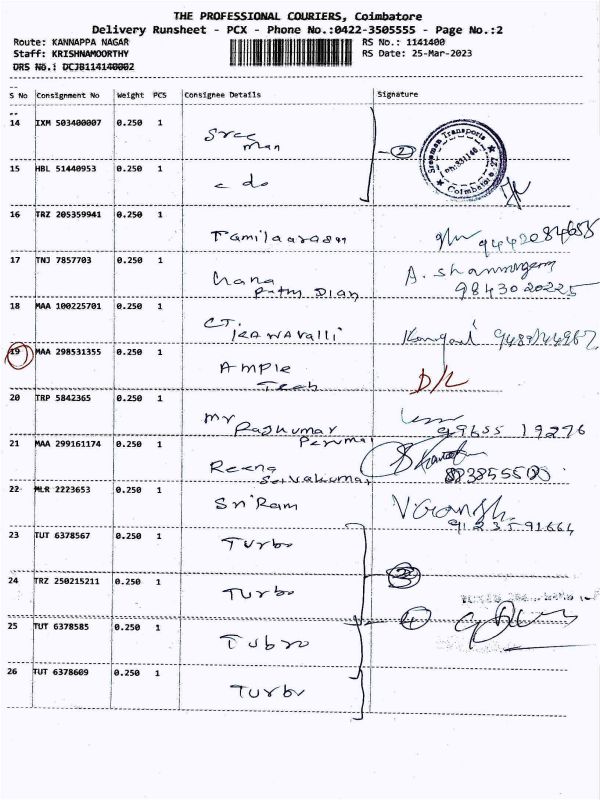 THE PROFESSIONAL COURIERS, Coimbatore
Delivery Runsheet - PCX - Phone No.:0422-3505555 - Page No.:2
Route: KANNAPPA NAGAR RS No.: 1141400
Staff: KRISHNAMOORTHY RS Date: 25-Mar-2023
DRS No.: DCJB114140002
S No Consignment No Weight PCS Consignee Details Signature
14 IXM 503400007 0.250 1 Sree
man 2
Sreeman Transports
Ph:331146
Coimbatore-27
15 HBL 51440953 0.250 1 - do
16 TRZ 205359941 0.250 1 Tamilaarasan 9442084655
17 TNJ 7857703 0.250 1 Chana A. Shanmugam
9843020225
18 MAA 100225701 0.250 1 CT
19 MAA 298531355 0.250 1 AMPle
Tech D/L
20 TRP 5842365 0.250 1 Mr
Rajkumar 99655 19276
Perumal
21 MAA 299161174 0.250 1 Reena
Selvakumar
22 MLR 2223653 0.250 1 Sri Ram V.Ganesh
91235 91664
23 TUT 6378567 0.250 1 Turbo
24 TRZ 250215211 0.250 1 Turbo
25 TUT 6378585 0.250 1 Tubro 4
26 TUT 6378609 0.250 1 Turbo